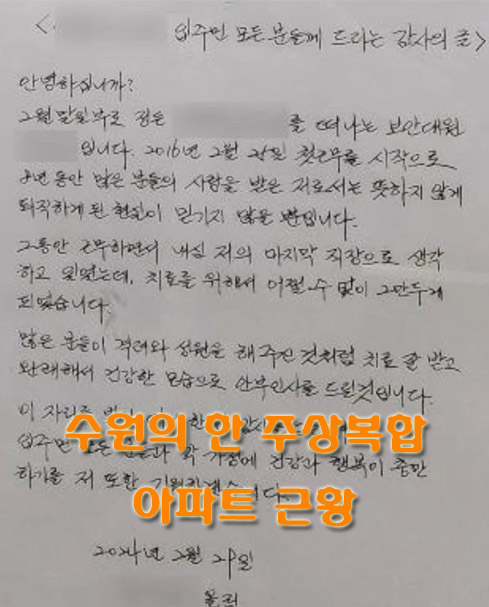 < 입주민 모든 분들께 드리는 감사의 글>
안녕하십니까?
2월 말일부로 정든 를 떠나는 보안대원
입니다. 2016년 2월 첫근무를 시작으로
8년 동안 많은 분들의 사랑을 받은 저로서는 뜻하지 않게
퇴직하게 된 현실이 믿기지 않을 뿐입니다.
그동안 근무하면서 내심 저의 마지막 직장으로 생각
하고 있었는데, 치료를 위해서 어쩔수 없이 그만두게
되었습니다.
많은 분들이 격려와 성원을 해주신 것처럼 치료 잘 받고
완쾌해서 건강한 모습으로 안부인사를 드릴것입니다.
이 자리를
수원의 한 주상복합
입주민 모든 각 가정에 건강과 행복이 충만
하기를 저 또한
아파트 근황
2024년 2월 29일
올림